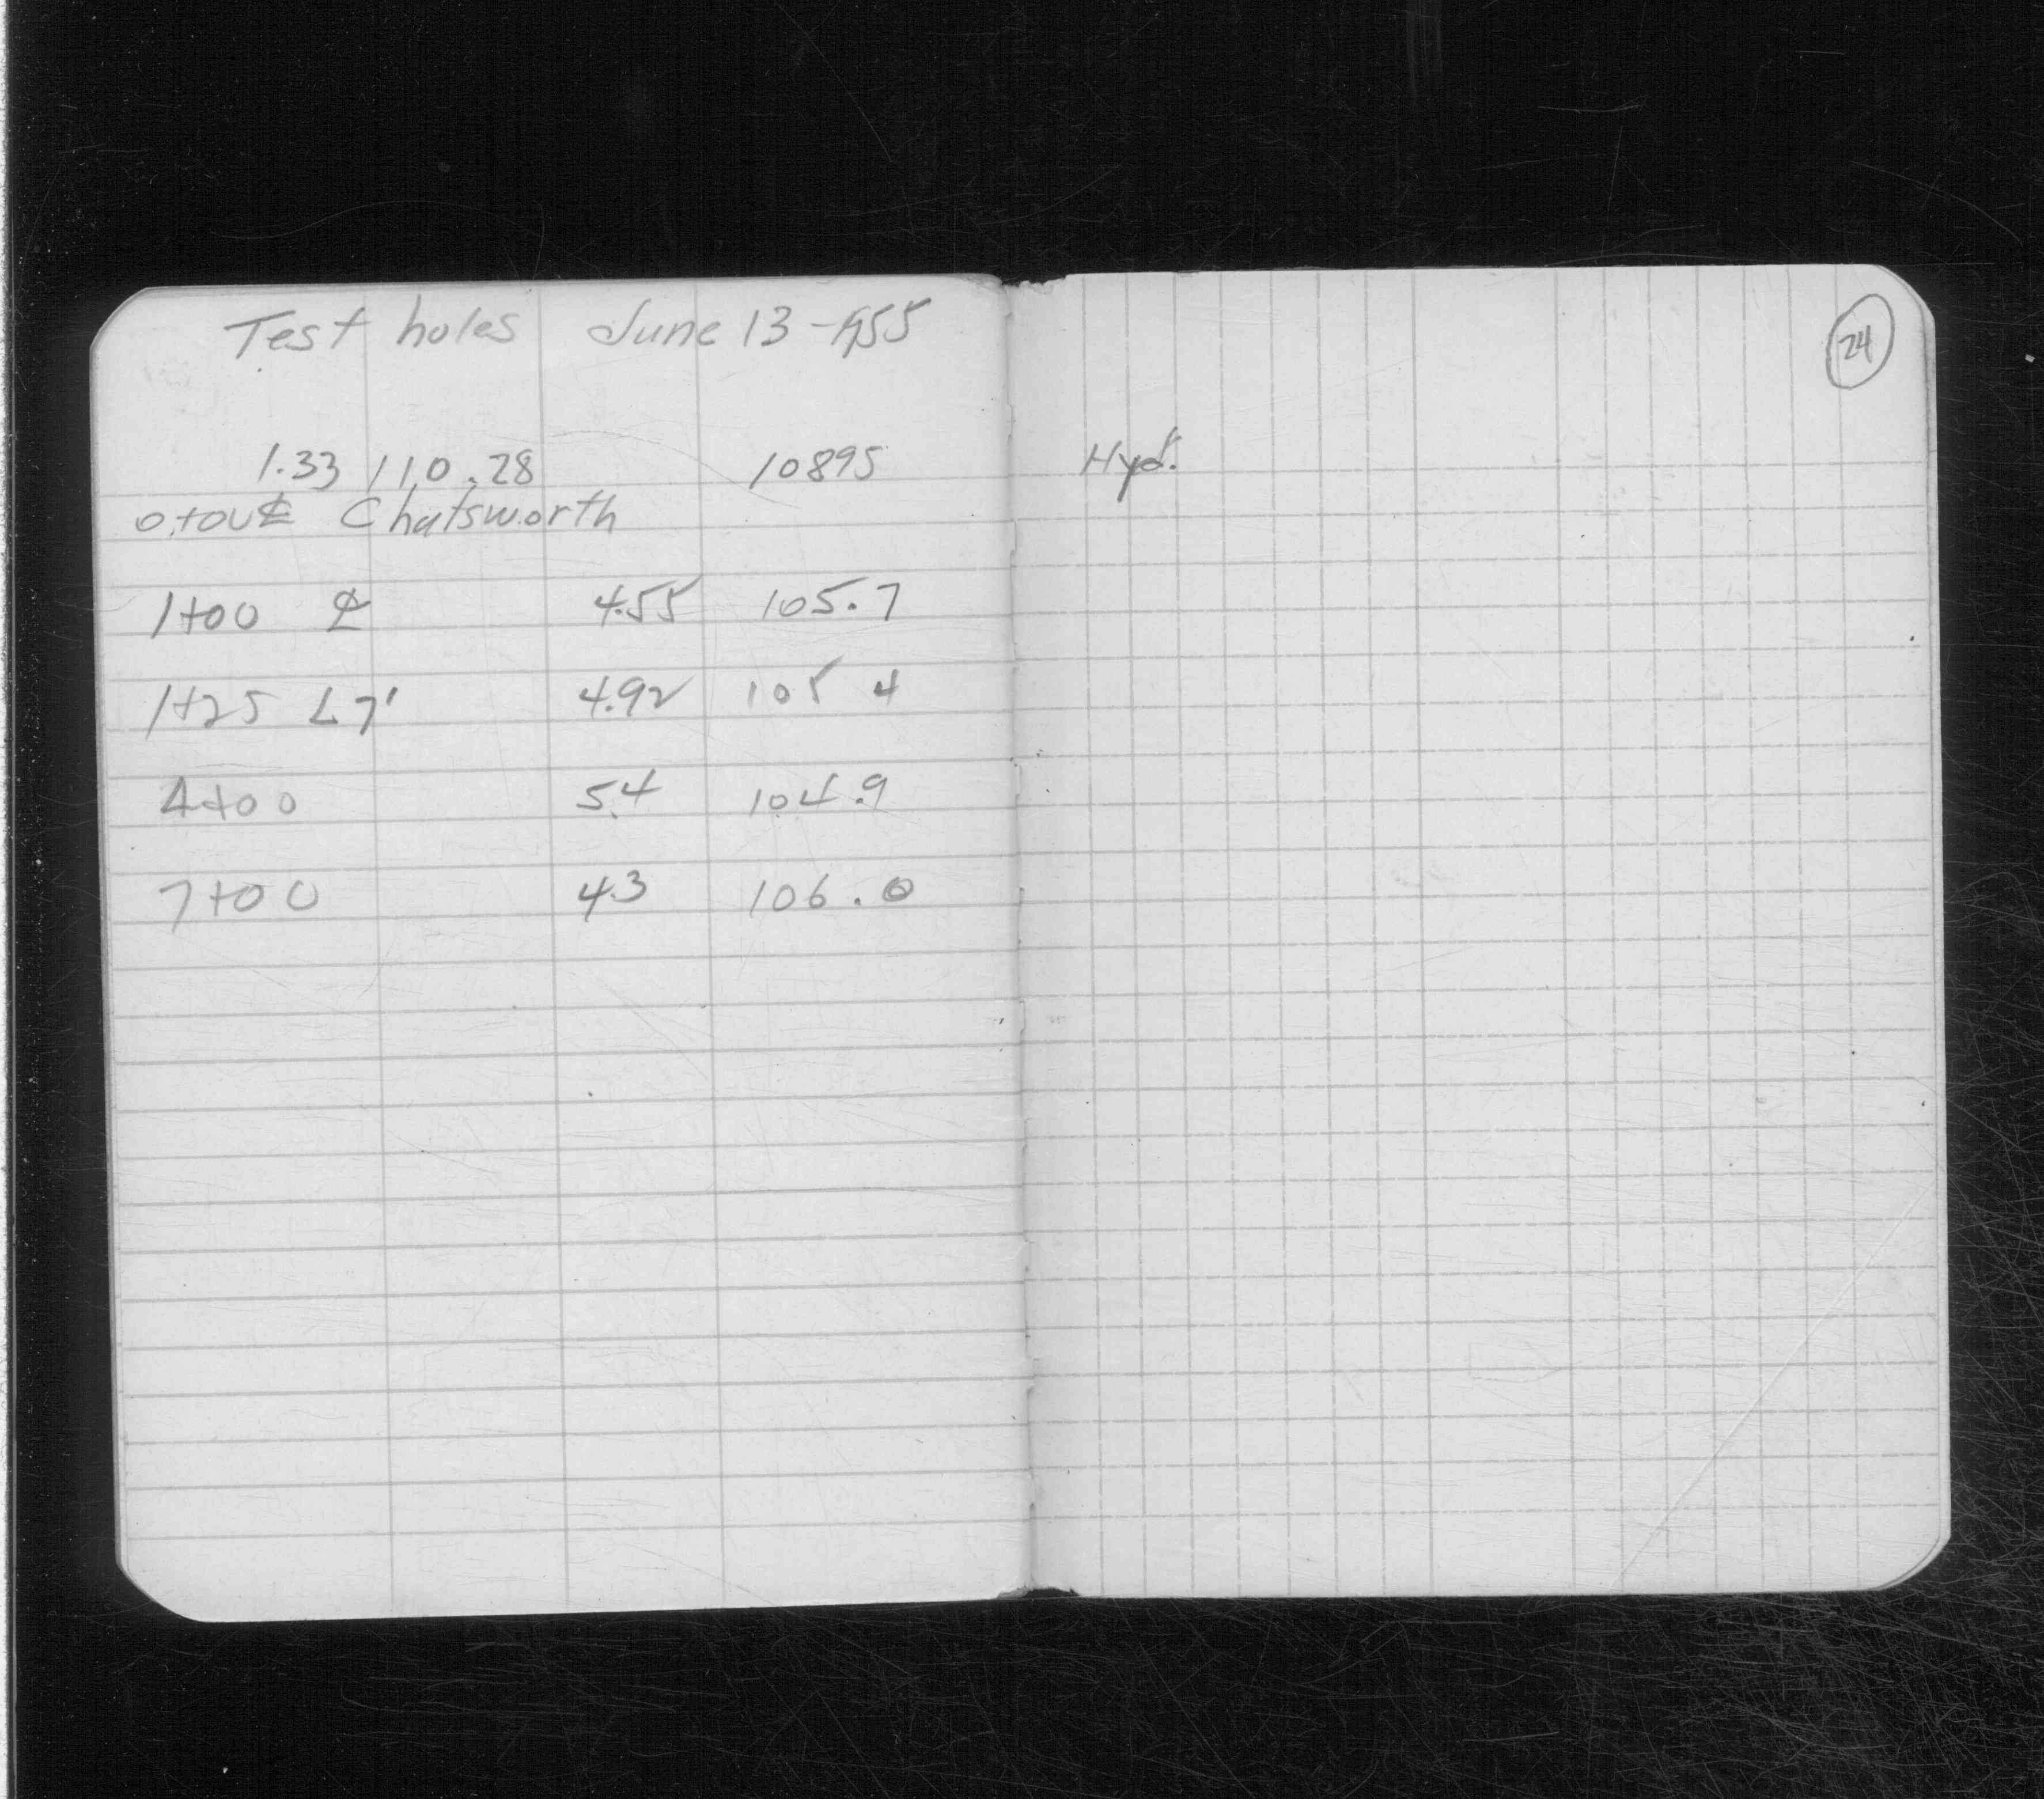 Test holes June 13-1955
24
1.33 110.28 10895 Hyd.
0+00 ℄ Chatsworth
1+00 ℄ 4.55 105.7
1+25 L 7' 4.92 105 4
4+00 5.4 104.9
7+00 4.3 106.0